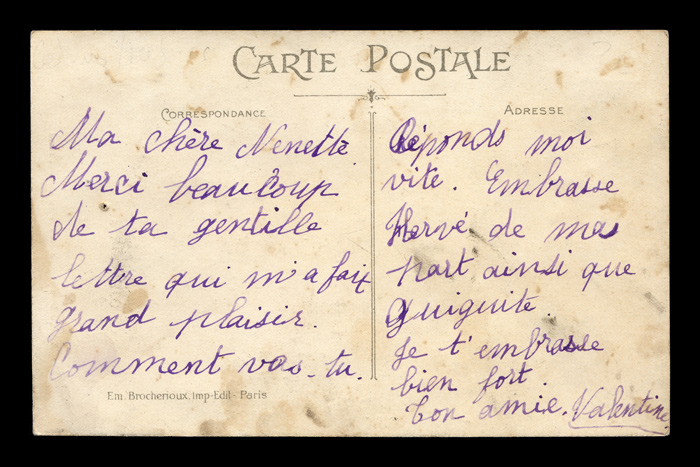 CARTE POSTALE
CORRESPONDANCE
Ma chère Nenette
Merci beaucoup
de ta gentille
lettre qui m'a fait
grand plaisir.
Comment vas-tu.
Em. Brocherioux, Imp-Edit- Paris
ADRESSE
Réponds moi
vite. Embrasse
Hervé de ma
part ainsi que
Guiguite.
Je t'embrasse
bien fort.
Ton amie. Valentine